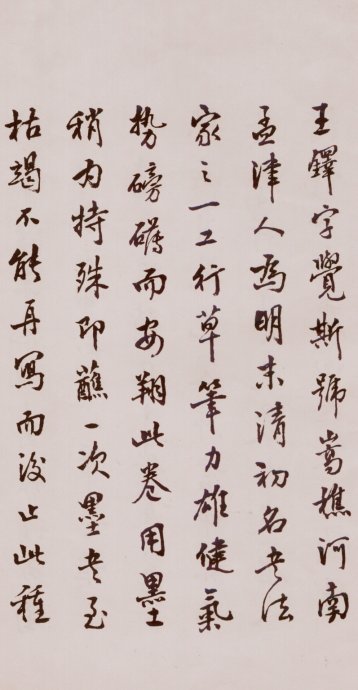 王鐸字覺斯號嵩樵河南
孟津人爲明末清初名书法
家之一工行草筆力雄健氣
势磅礴而安翔此卷用墨
稍为特殊即蘸一次墨书至
枯竭不能再寫而後止此種